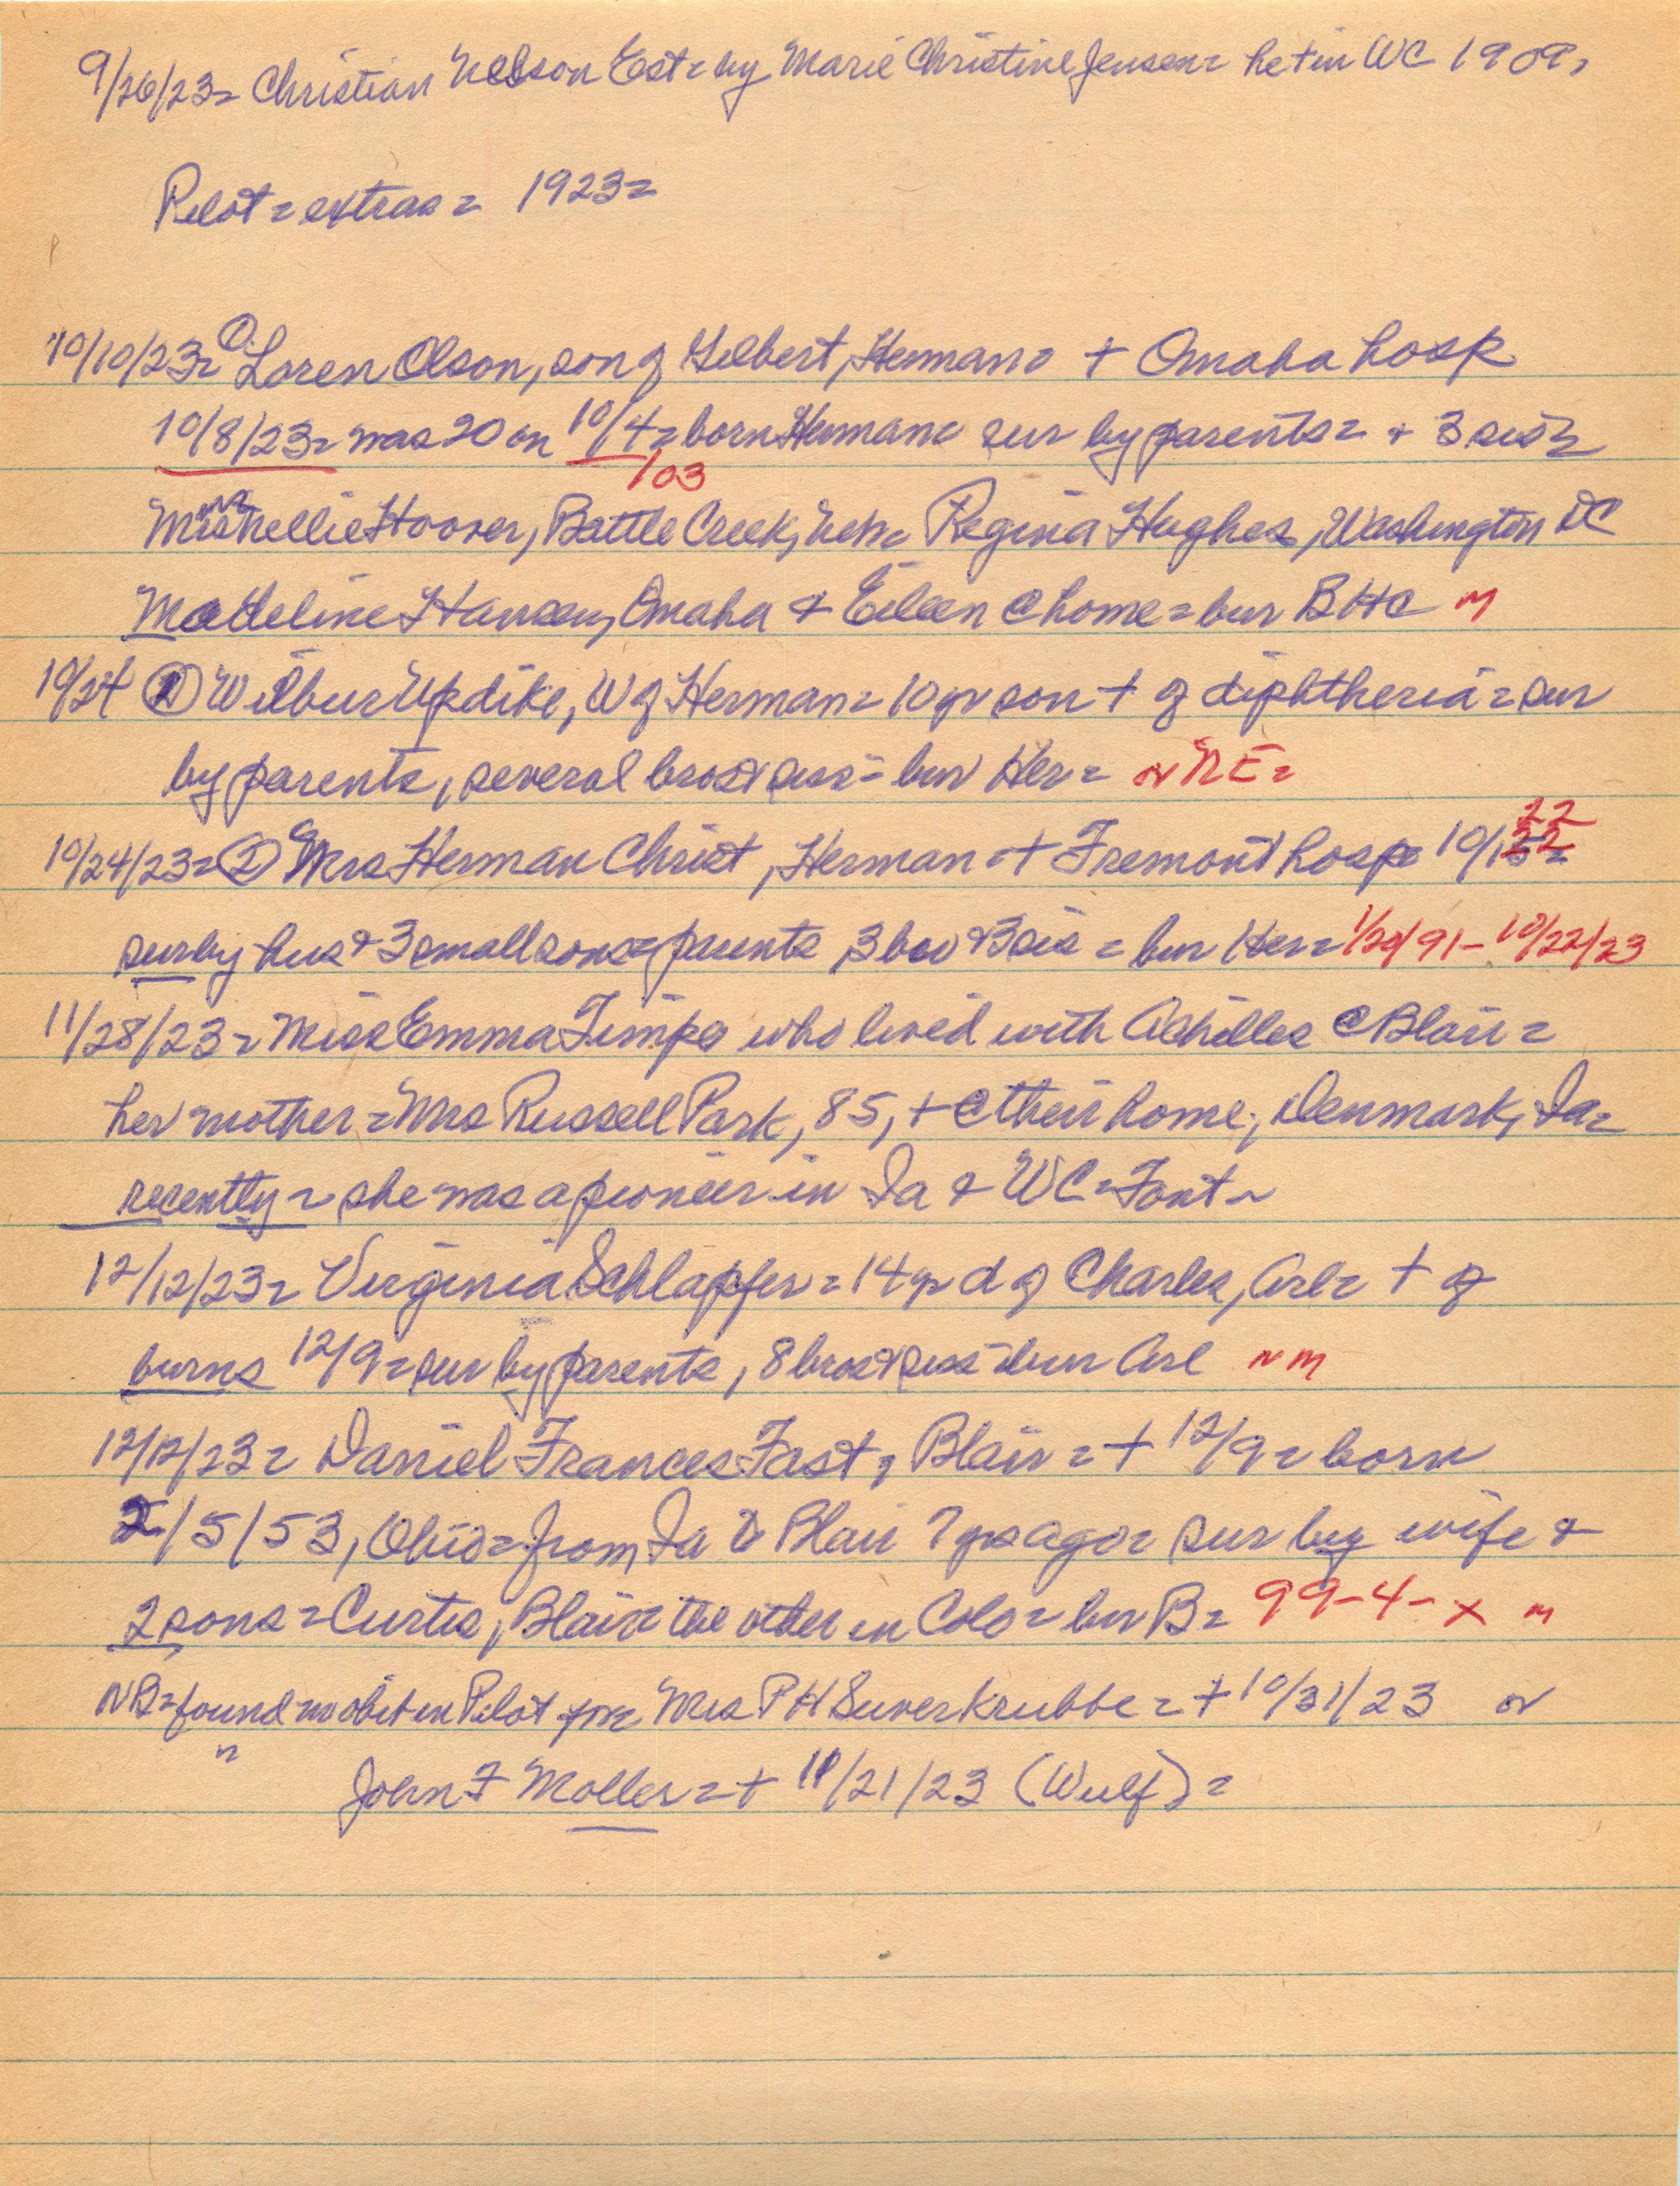 9/26/23= Christian Nelson Est= by Marie Christine Jensen= he + in WC 1909,
Pilot = extras = 1923=
10/10/23= ① Loren Olson, son of Gilbert, Herman= + Omaha hosp
10/8/23= was 20 on 10/4= born Herman= sur by parents= + 3 sis=
/03
Mrs Nellie Hoover, Battle Creek, Neb= Regina Hughes, Washington DC
Madeline Hansen, Omaha & Eileen @ home = bur BHC M
10/24 ② Wilbur Updike, W of Herman= 10 yr son + of diphtheria = sur
by parents, several bros & sis = bur Her= NRE=
22
10/24/23= ② Mrs Herman Christ, Herman = + Fremont hosp 10/
sur by hus & 3 small sons= parents, 3 bro & 3 sis = bur Her= 1/20/91 - 10/22/23
11/28/23= Miss Emma Timpe who lived with Achilles @ Blair =
her mother = Mrs Russell Park, 85, + @ their home, Denmark, Ia=
recently = she was a pioneer in Ia & WC = Font ~
12/12/23= Virginia Schlapfer = 14 yr d of Charles, Arl= + of
burns 12/9= sur by parents, 8 bros & sis = bur Arl NM
12/12/23= Daniel Frances Fast, Blair = + 12/9= born
2/5/53, Ohio= from Ia to Blair 7 yrs ago= sur by wife &
2 sons = Curtis, Blair & the other in Colo = bur B= 99-4-X M
NB= found no obit in Pilot for= Mrs P H Suverkrubbe = + 10/31/23 or
" John F Moller = + 11/21/23 (Wulf) =